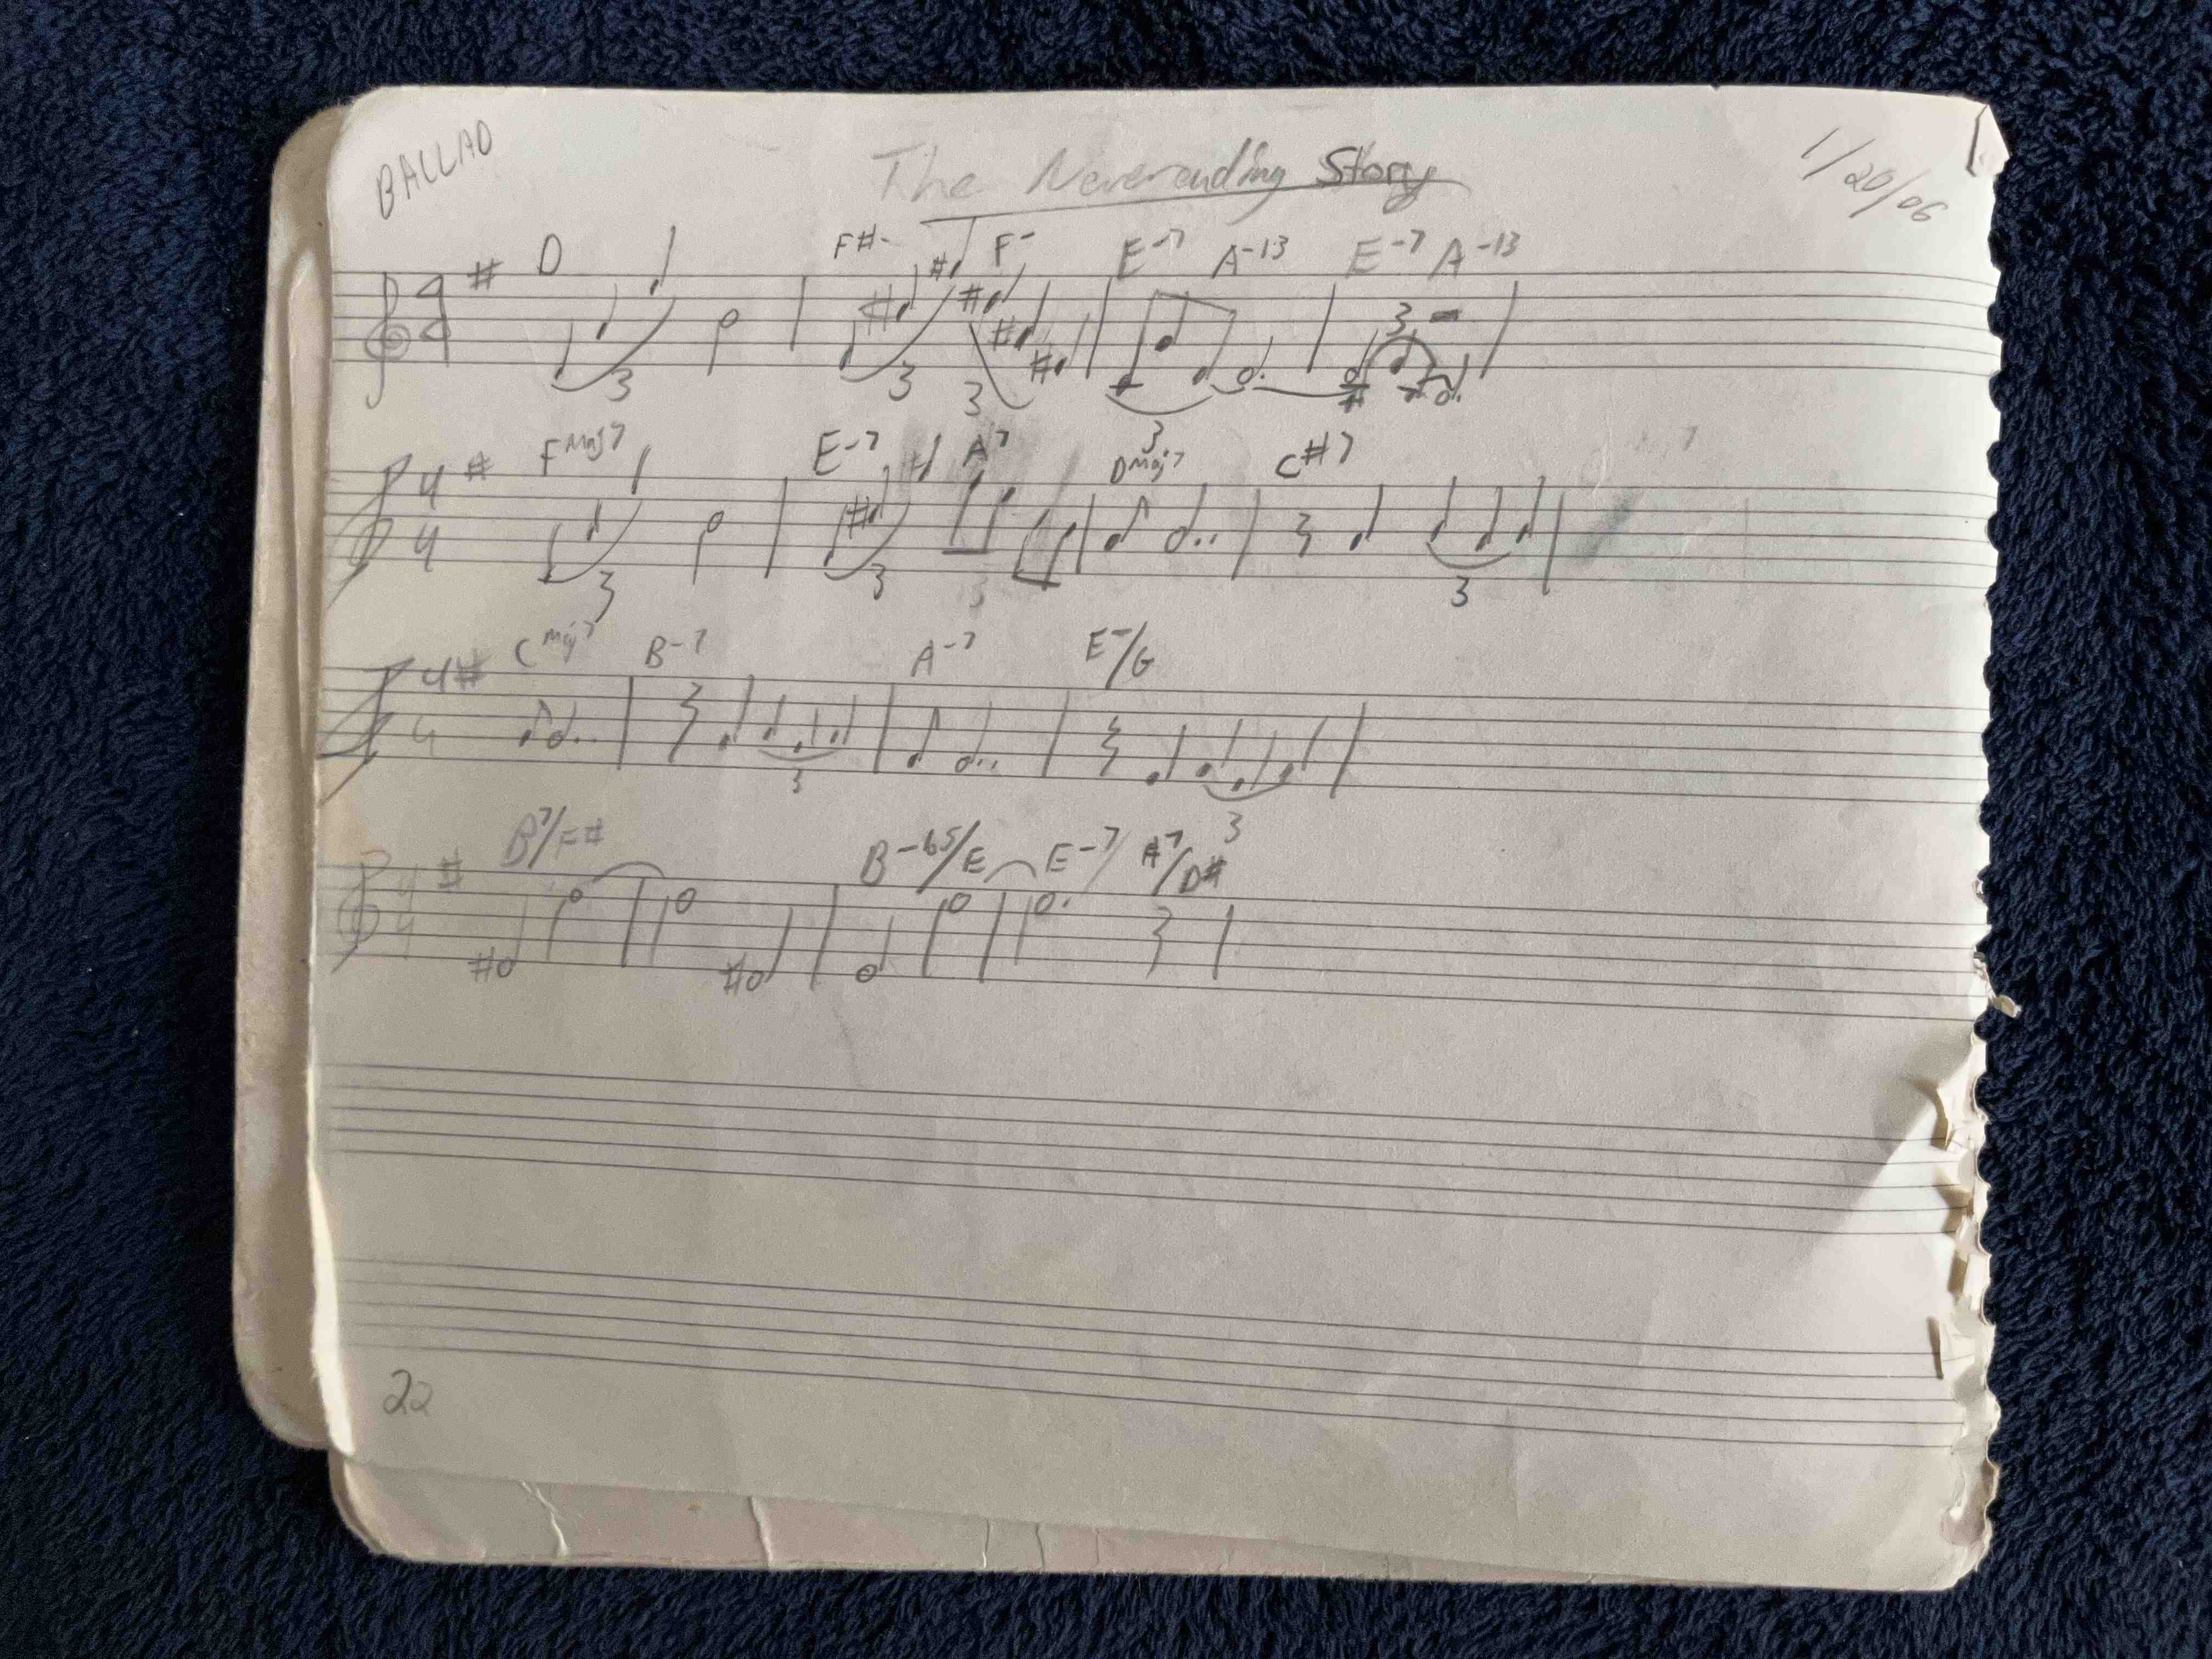 BALLAD
The Neverending Story
1/20/06
D F#- F- E-7 A-13 E-7 A-13
3 3 3 3
4 4
FMaj7 E-7 A7 DMaj7 C#7
3 3 3 3 3
4 4
CMaj7 B-7 A-7 E-/G
3 3
4 4
B7/F# B-b5/E E-7/ A7/D#
4 4
22